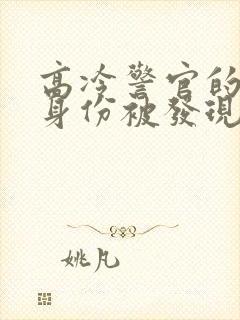 高冷警官的
身份被發現
姚凡